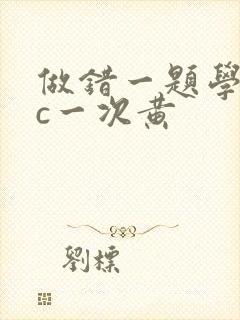 做錯一題學
c一次黃
劉標